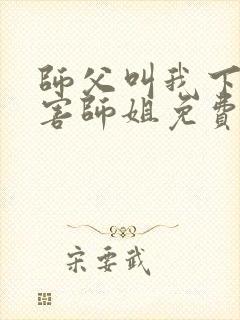 師父叫我下
害師姐免費
宋要武